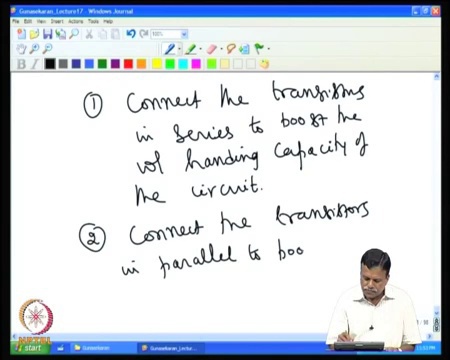 Gunasekaran_Lecture17 - Windows Journal
File Edit View Insert Actions Tools Help
100%
B I
① Connect the transistors
in series to boost the
vol handing capacity of
the circuit.
② Connect the transistors
in parallel to boo
NPTEL
start Gunasekaran Gunasekaran_Lectur...